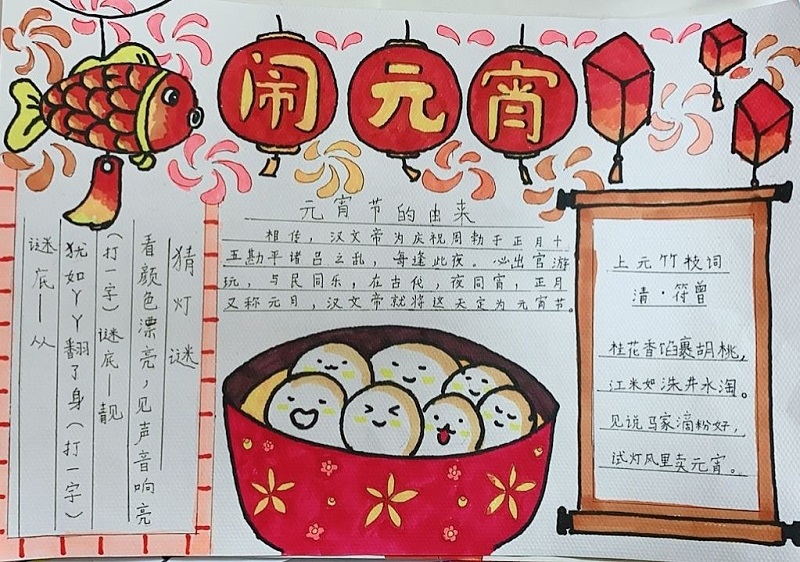 闹元宵
元宵节的由来
相传，汉文帝为庆祝周勃于正月十
五勘平诸吕之乱，每逢此夜。必出宫游
玩，与民同乐，在古代，夜同宵，正月
又称元月，汉文帝就将这天定为元宵节。
猜灯谜
看颜色漂亮，见声音响亮
（打一字）谜底——靓
犹如丫丫翻了身（打一字）
谜底——从
上元竹枝词
清·符曾
桂花香馅裹胡桃，
江米如洙井水淘。
见说马家滴粉好，
试灯风里卖元宵。